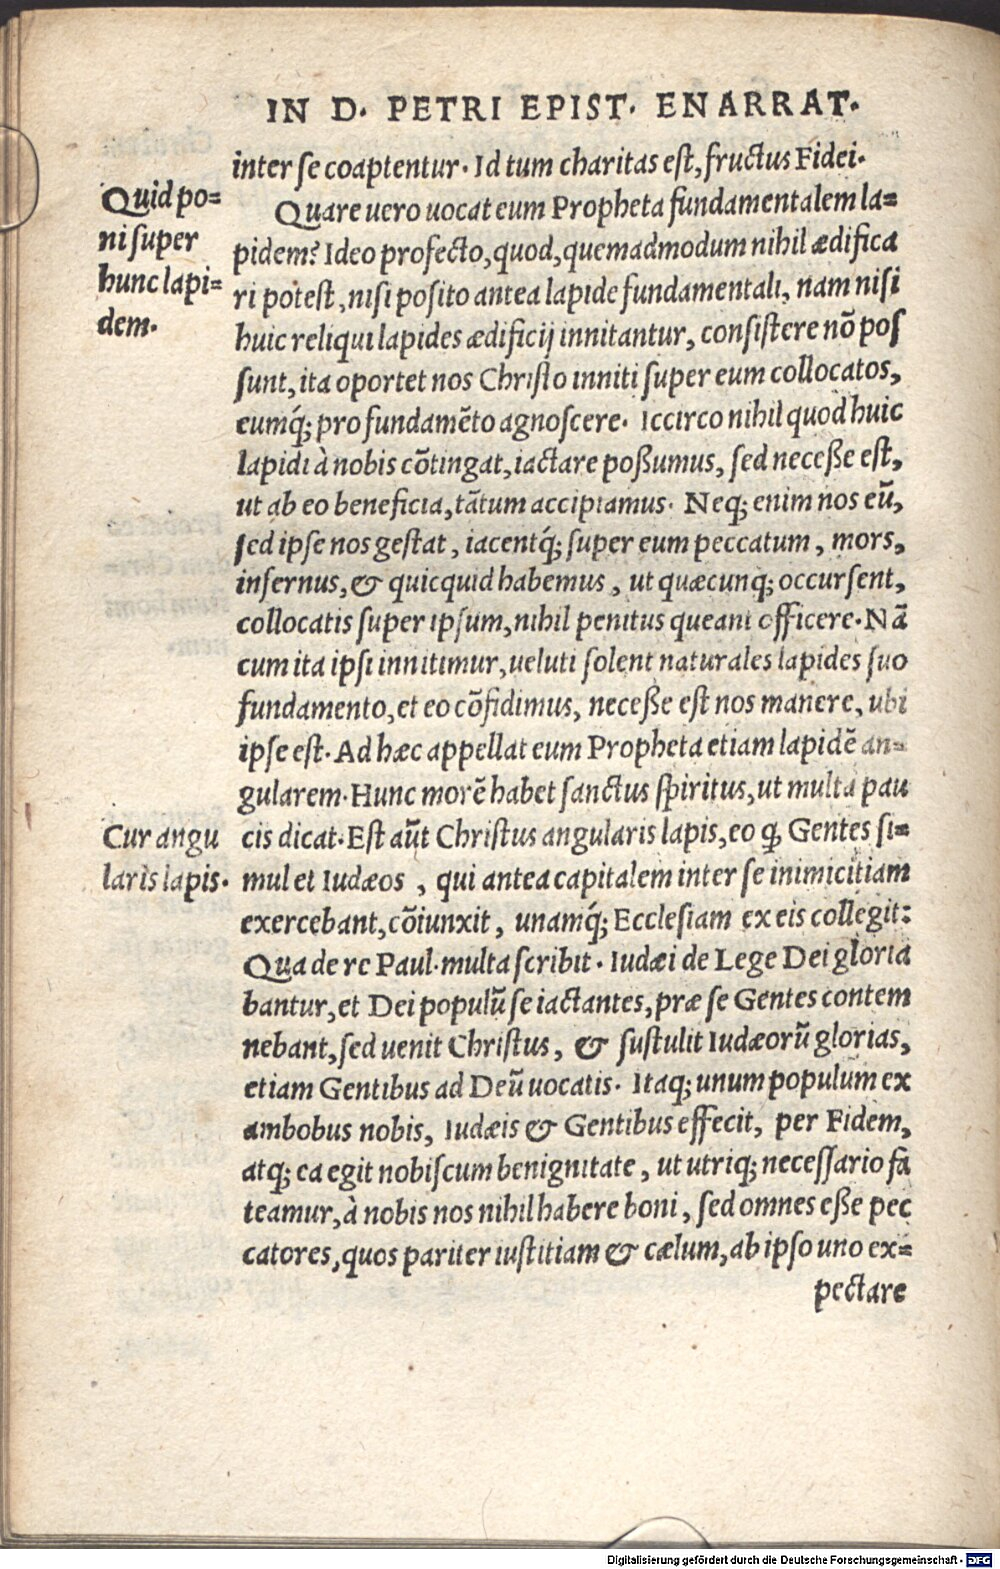 IN D. PETRI EPIST. ENARRAT.
inter se coaptentur. Id tum charitas est, fructus Fidei.
Quid po=
ni super
hunc lapi=
dem.
Quare uero uocat eum Propheta fundamentalem la=
pidem? Ideo profecto, quod, quemadmodum nihil ædifica
ri potest, nisi posito antea lapide fundamentali, nam nisi
huic reliqui lapides ædificij innitantur, consistere nõ pos
sunt, ita oportet nos Christo inniti super eum collocatos,
eumq́; pro fundamẽto agnoscere. Iccirco nihil quod huic
lapidi à nobis cõtingat, iactare poßumus, sed neceße est,
ut ab eo beneficia, tãtum accipiamus. Neq; enim nos eũ,
sed ipse nos gestat, iacentq́; super eum peccatum, mors,
infernus, & quicquid habemus, ut quæcunq; occursent,
collocatis super ipsum, nihil penitus queant officere. Nã
cum ita ipsi innitimur, ueluti solent naturales lapides suo
fundamento, et eo cõfidimus, neceße est nos manere, ubi
ipse est. Ad hæc appellat eum Propheta etiam lapidẽ an=
gularem. Hunc morẽ habet sanctus spiritus, ut multa pau
Cur angu
laris lapis.
cis dicat. Est aũt Christus angularis lapis, eo q; Gentes si=
mul et Iudæos, qui antea capitalem inter se inimicitiam
exercebant, cõiunxit, unamq́; Ecclesiam ex eis collegit:
Qua de re Paul. multa scribit. Iudæi de Lege Dei gloria
bantur, et Dei populũ se iactantes, præ se Gentes contem
nebant, sed uenit Christus, & sustulit Iudæorũ glorias,
etiam Gentibus ad Deũ uocatis. Itaq; unum populum ex
ambobus nobis, Iudæis & Gentibus effecit, per Fidem,
atq; ea egit nobiscum benignitate, ut utriq; necessario fa
teamur, à nobis nos nihil habere boni, sed omnes eße pec
catores, quos pariter iustitiam & cælum, ab ipso uno ex=
pectare
Digitalisierung gefördert durch die Deutsche Forschungsgemeinschaft - DFG